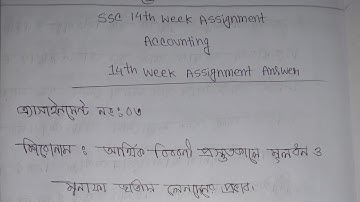 SSC 14th Week Assignment
Accounting
14th Week Assignment Answer
এ্যাসাইনমেন্ট নং : ০৩
শিরোনাম : আর্থিক বিবরণী প্রস্তুতকালে মূলধন ও
মুনাফা জাতীয় লেনদেনের প্রভাব।